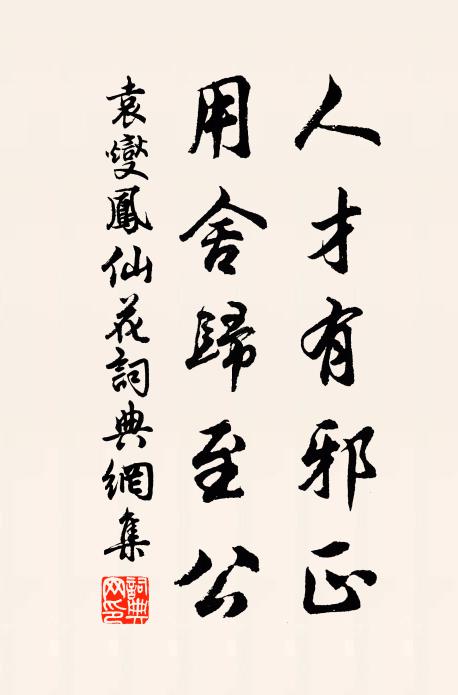 人才有邪正
用舍歸至公
袁燮鳳仙花詞典網集
詞典网印